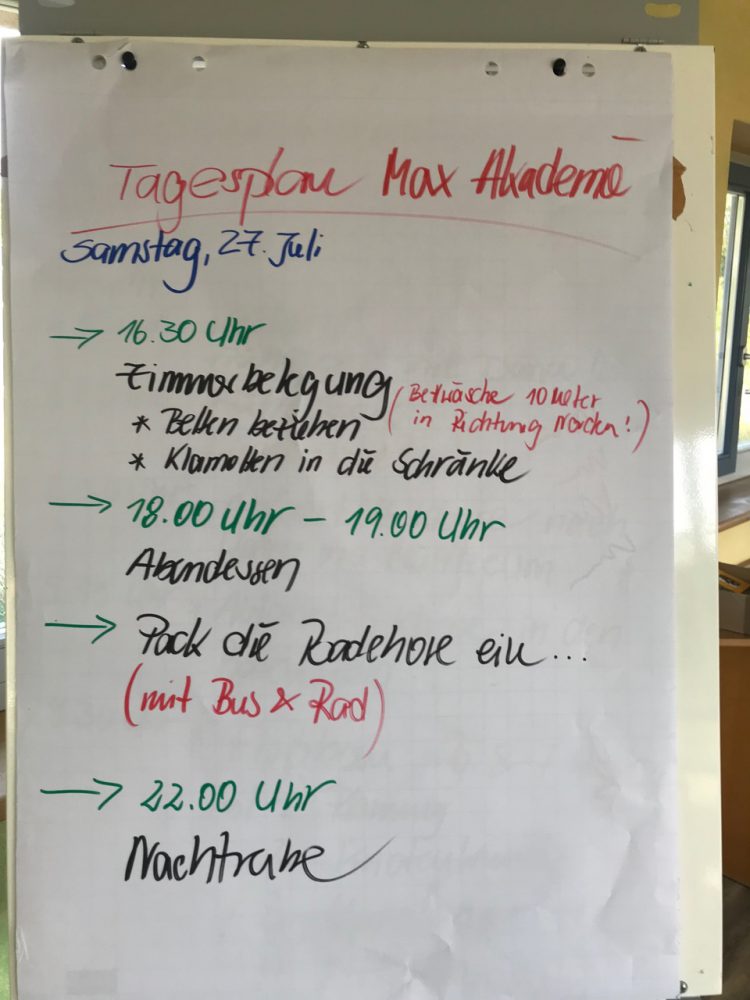 Tagesplan Max Akademie
Samstag, 27. Juli
→ 16.30 Uhr
Zimmerbelegung (Bettwäsche 10 Meter
in Richtung Norden!)
* Betten beziehen
* Klamotten in die Schränke
→ 18.00 Uhr – 19.00 Uhr
Abendessen
→ Pack die Badehose ein...
(mit Bus & Rad)
→ 22.00 Uhr
Nachtruhe